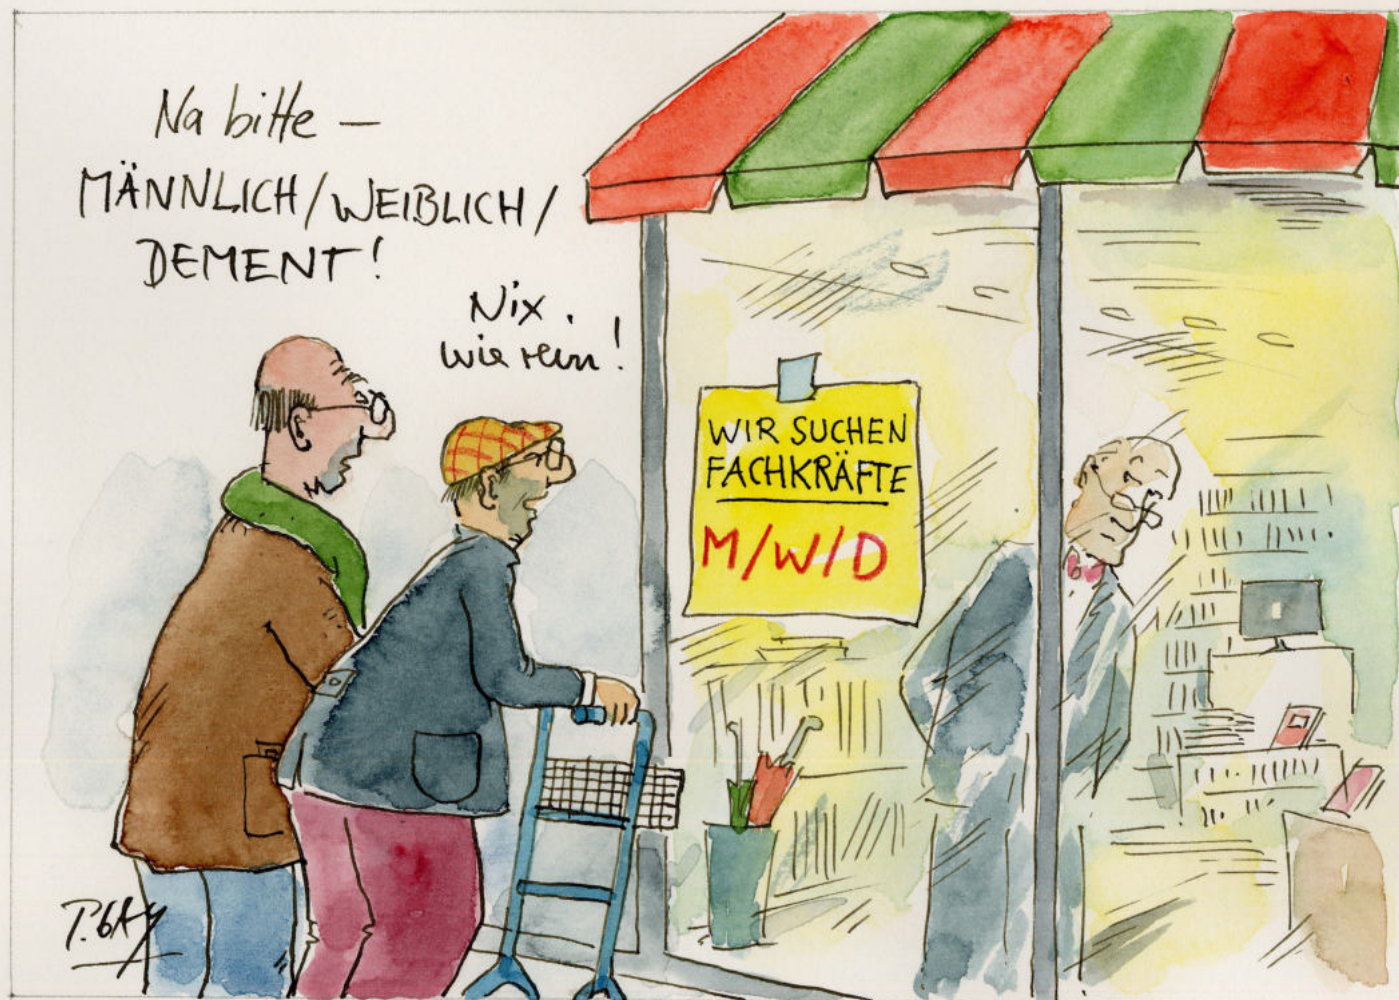 Na bitte –
MÄNNLICH/WEIBLICH/
DEMENT!
Nix
wie rein!
WIR SUCHEN
FACHKRÄFTE
M/W/D
P. GAY